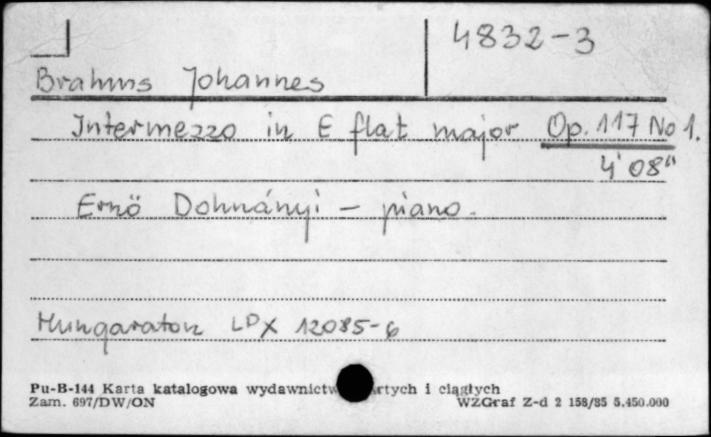 4832-3
Brahms Johannes
Intermezzo in E flat major Op. 117 No 1.
4' 08"
Ernö Dohnányi – piano.
Hungaraton LDX 12085-6
Pu-B-144 Karta katalogowa wydawnictw i ciągłych
Zam. 697/DW/ON WZGraf Z-d 2 158/85 5.450.000